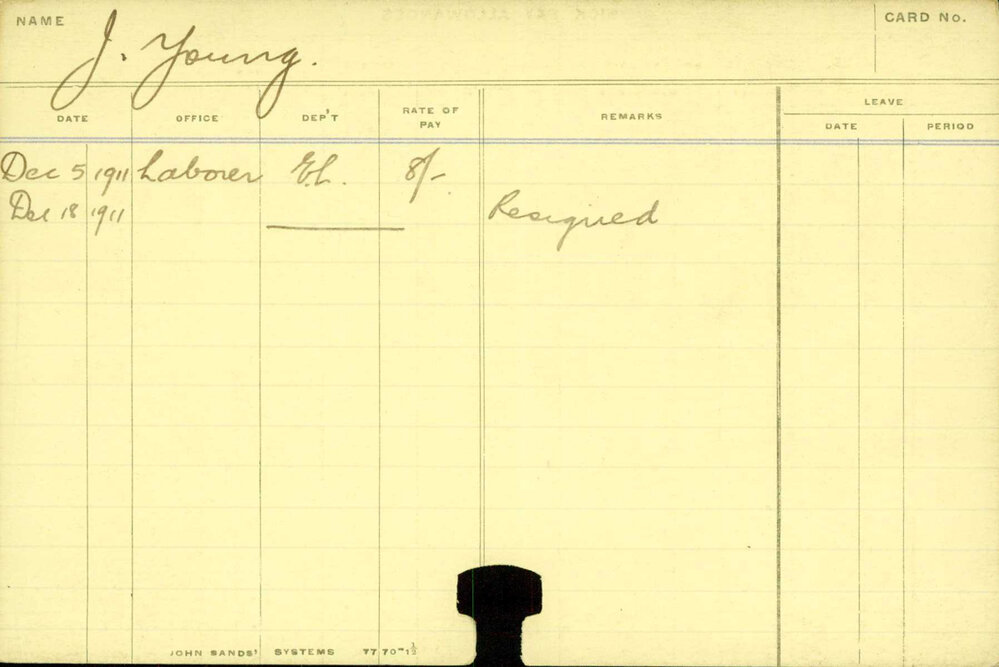 NAME J. Young. CARD No.
LEAVE
DATE OFFICE DEP'T RATE OF PAY REMARKS DATE PERIOD
Dec 5 1911 Laborer E.L. 8/-
Dec 18 1911 Resigned
JOHN SANDS' SYSTEMS 77 70-1½